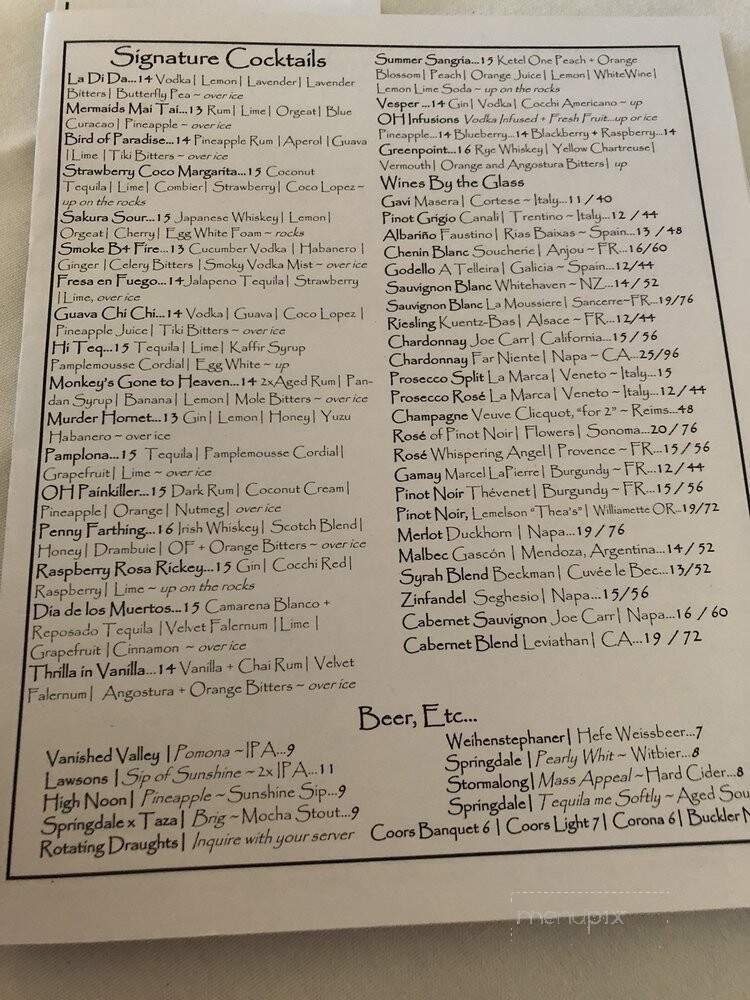 Signature Cocktails
La Di Da...14 Vodka| Lemon| Lavender| Lavender
Bitters| Butterfly Pea ~ over ice
Mermaids Mai Tai...13 Rum| Lime| Orgeat| Blue
Curacao| Pineapple ~ over ice
Bird of Paradise...14 Pineapple Rum |Aperol |Guava
|Lime |Tiki Bitters ~ over ice
Strawberry Coco Margarita...15 Coconut
Tequila| Lime| Combier| Strawberry| Coco Lopez ~
up on the rocks
Sakura Sour...15 Japanese Whiskey| Lemon|
Orgeat| Cherry| Egg White Foam ~ rocks
Smoke B4 Fire...13 Cucumber Vodka | Habanero |
Ginger |Celery Bitters |Smoky Vodka Mist ~ over ice
Fresa en Fuego...14 Jalapeno Tequila| Strawberry
|Lime, over ice
Guava Chi Chi...14 Vodka| Guava| Coco Lopez|
Pineapple Juice| Tiki Bitters ~ over ice
Hi Teq...15 Tequila| Lime| Kaffir Syrup
Pamplemousse Cordial| Egg White ~ up
Monkey's Gone to Heaven...14 2xAged Rum| Pan-
dan Syrup| Banana| Lemon| Mole Bitters ~ over ice
Murder Hornet...13 Gin| Lemon| Honey| Yuzu
Habanero ~ over ice
Pamplona...15 Tequila| Pamplemousse Cordial|
Grapefruit| Lime ~ over ice
OH Painkiller...15 Dark Rum| Coconut Cream|
Pineapple| Orange| Nutmeg| over ice
Penny Farthing...16 Irish Whiskey| Scotch Blend|
Honey| Drambuie| OF + Orange Bitters ~ over ice
Raspberry Rosa Rickey...15 Gin| Cocchi Red|
Raspberry| Lime ~ up on the rocks
Día de los Muertos...15 Camarena Blanco +
Reposado Tequila |Velvet Falernum |Lime |
Grapefruit |Cinnamon ~ over ice
Thrilla in Vanilla...14 Vanilla + Chai Rum| Velvet
Falernum| Angostura + Orange Bitters ~ over ice
Summer Sangria...15 Ketel One Peach + Orange
Blossom| Peach| Orange Juice| Lemon| White Wine|
Lemon Lime Soda ~ up on the rocks
Vesper ...14 Gin| Vodka| Cocchi Americano ~ up
OH Infusions Vodka Infused + Fresh Fruit...up or ice
Pineapple...14 Blueberry...14 Blackberry + Raspberry...14
Greenpoint...16 Rye Whiskey| Yellow Chartreuse|
Vermouth| Orange and Angostura Bitters| up
Wines By the Glass
Gavi Masera| Cortese ~ Italy...11 / 40
Pinot Grigio Canali| Trentino ~ Italy...12 / 44
Albariño Faustino| Rias Baixas ~ Spain...13 / 48
Chenin Blanc Soucherie| Anjou ~ FR...16/60
Godello A Telleira| Galicia ~ Spain...12/44
Sauvignon Blanc Whitehaven ~ NZ...14 / 52
Sauvignon Blanc La Moussiere| Sancerre~FR...19/76
Riesling Kuentz-Bas| Alsace ~ FR...12/44
Chardonnay Joe Carr| California...15 / 56
Chardonnay Far Niente| Napa ~ CA...25/96
Prosecco Split La Marca| Veneto ~ Italy...15
Prosecco Rosé La Marca| Veneto ~ Italy...12 / 44
Champagne Veuve Clicquot, "for 2" ~ Reims...48
Rosé of Pinot Noir| Flowers| Sonoma...20 / 76
Rosé Whispering Angel| Provence ~ FR...15 / 56
Gamay Marcel LaPierre| Burgundy ~ FR...12 / 44
Pinot Noir Thévenet| Burgundy ~ FR...15 / 56
Pinot Noir, Lemelson "Thea's"| Williamette OR..19/72
Merlot Duckhorn | Napa...19 / 76
Malbec Gascón | Mendoza, Argentina...14 / 52
Syrah Blend Beckman| Cuvée le Bec...13/52
Zinfandel Seghesio| Napa...15/56
Cabernet Sauvignon Joe Carr| Napa...16 / 60
Cabernet Blend Leviathan| CA...19 / 72
Beer, Etc...
Vanished Valley | Pomona ~IPA...9
Lawsons | Sip of Sunshine ~ 2x IPA...11
High Noon| Pineapple ~ Sunshine Sip...9
Springdale x Taza| Brig ~ Mocha Stout...9
Rotating Draughts| Inquire with your server
Weihenstephaner| Hefe Weissbeer...7
Springdale |Pearly Whit ~ Witbier...8
Stormalong| Mass Appeal ~Hard Cider...8
Springdale| Tequila me Softly ~ Aged Sou
Coors Banquet 6 | Coors Light 7| Corona 6| Buckler N
menupix